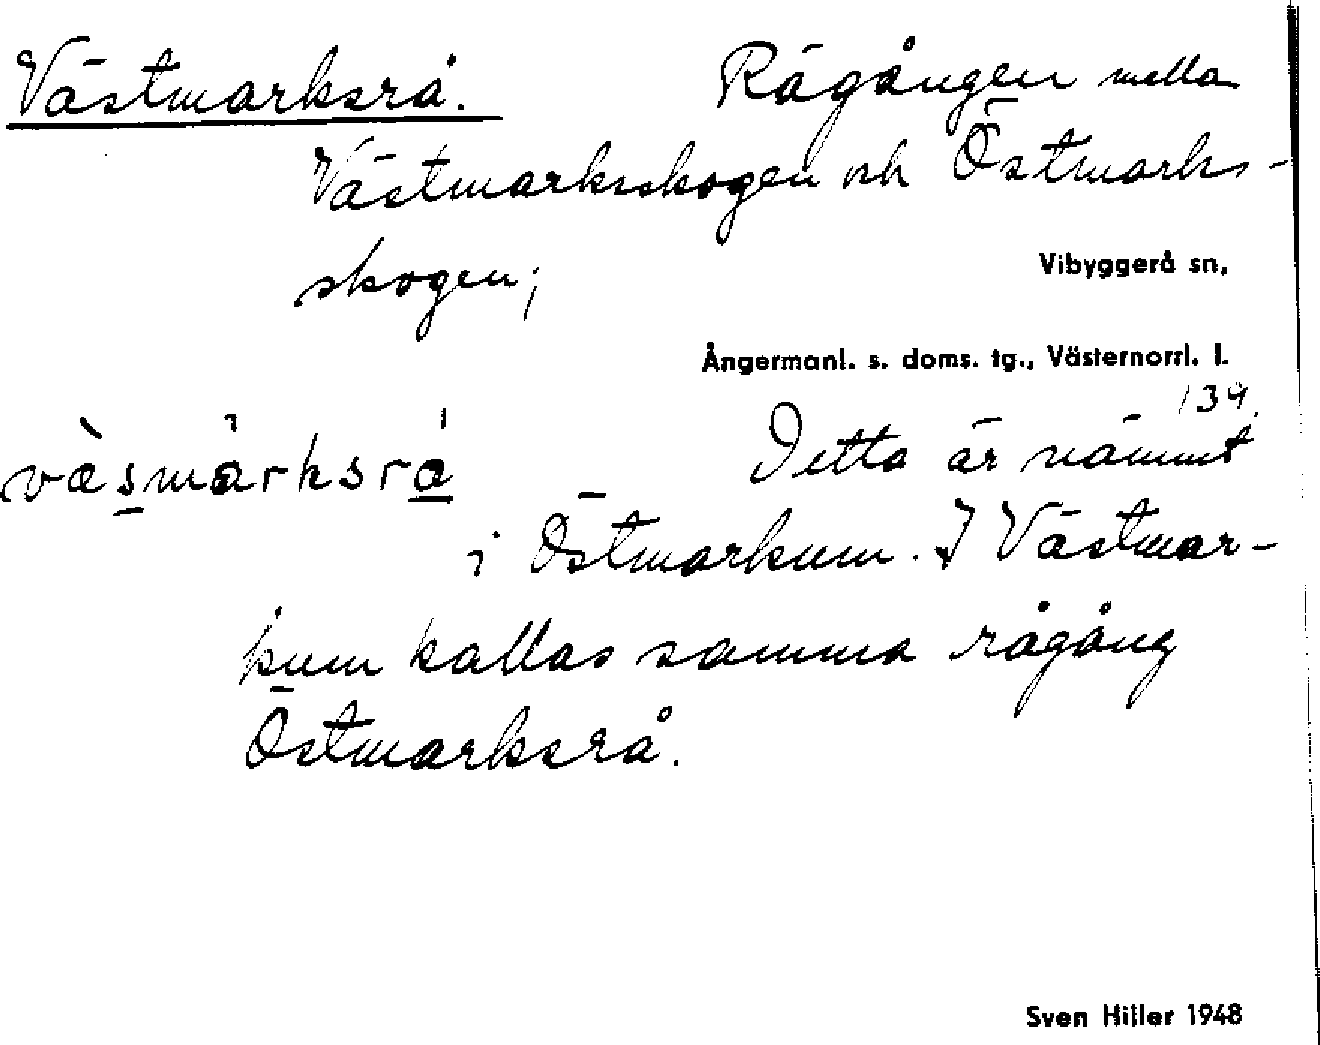 Västmarksrå. Rågången mella
Västmarksskogen och Östmarks-
skogen;
Vibyggerå sn,
Ångermanl. s. doms. tg., Västernorrl. l.
139.
Detta är nämnt
i Östmarkum. I Västmar-
kum kallas samma rågång
Östmarksrå.
Sven Hiller 1948